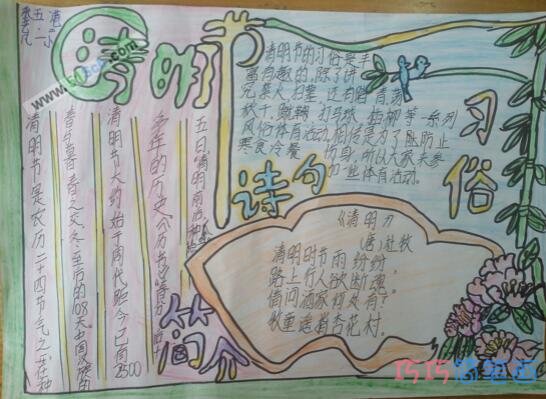 清明节
五.二
清明节的习俗是丰
富有趣的,除了讲
究禁火、扫墓,还有踏青、荡
秋千、蹴鞠、打马球、插柳等一系列
风俗体育活动。相传是为了能防止
寒食冷餐 伤身,所以大家来参
加一些体育活动。
习俗
诗句
《清明》
(唐)杜牧
清明时节雨纷纷
路上行人欲断魂。
借问酒家何处有?
牧童遥指杏花村。
简介
清明节是农历二十四节气之一,在仲
春与暮春之交,冬至后的108天。中国汉族的
清明节大约始于周代,距今已有2500
多年的历史。《历书》:“春分
五日,
巧巧